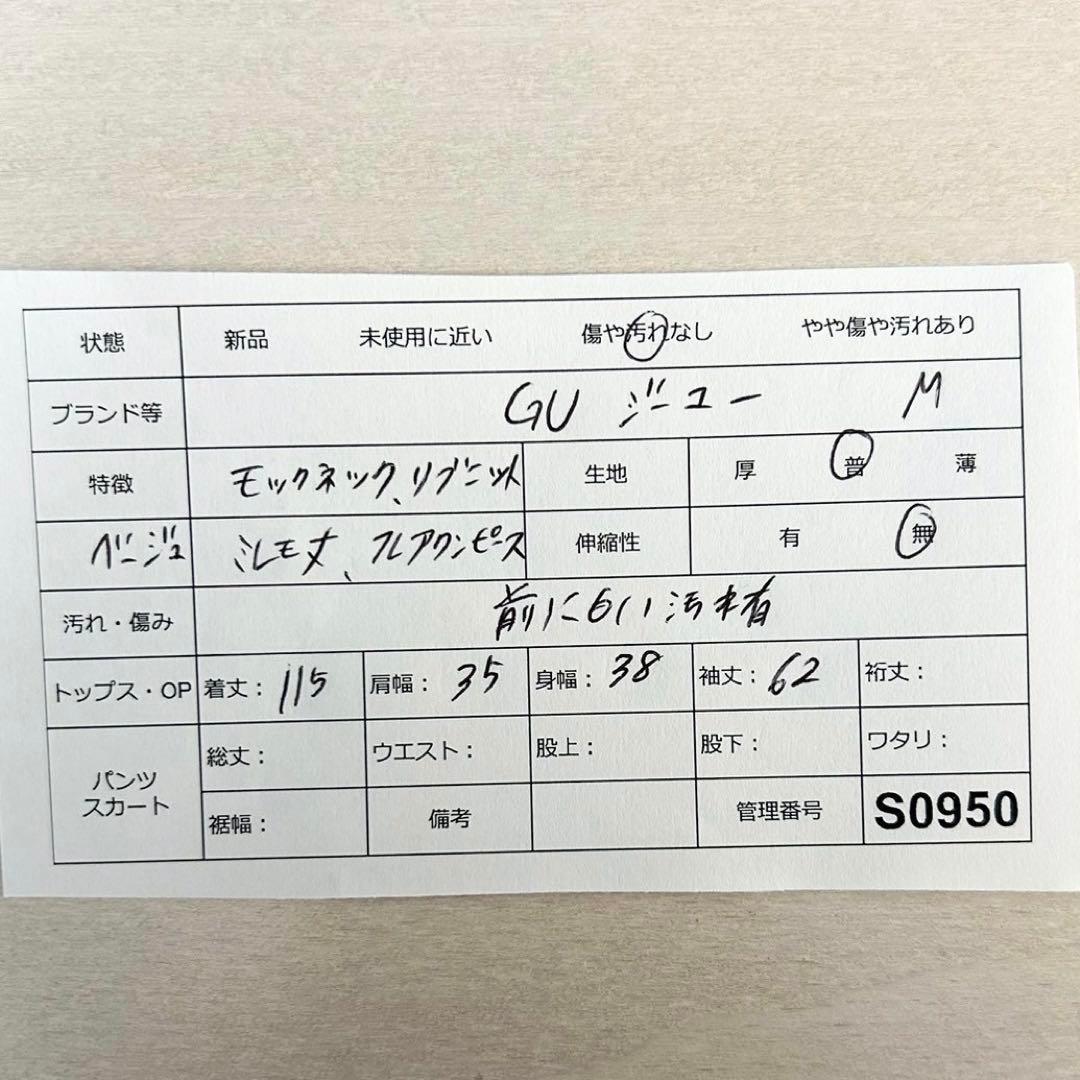 状態 新品 未使用に近い 傷や汚れなし やや傷や汚れあり
ブランド等 GU ジーユー M
特徴 モックネック、リブニット 生地 厚 普 薄
ベージュ ミレモ丈、フレアワンピース 伸縮性 有 無
汚れ・傷み 前に 汚れ有
トップス・OP 着丈: 115 肩幅: 35 身幅: 38 袖丈: 62 裄丈:
パンツ スカート 総丈: ウエスト: 股上: 股下: ワタリ:
裾幅: 備考 管理番号 S0950